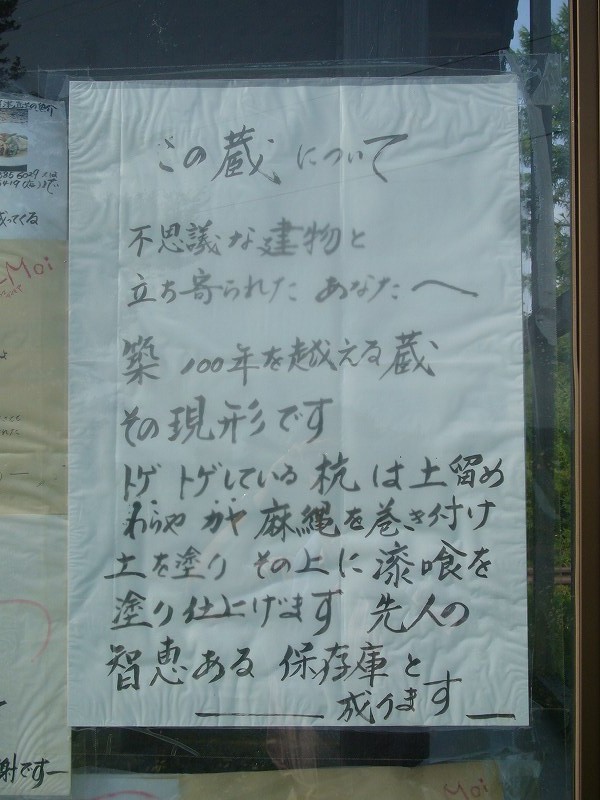 この蔵について
不思議な建物と
立ち寄られたあなたへ
築100年を越える蔵
その現形です
トゲトゲしている杭は土留め
わらやガヤ麻縄を巻き付け
土を塗りその上に漆喰を
塗り仕上げます 先人の
智恵ある保存庫と
成ります
Moi
ってくる
射です
Moi